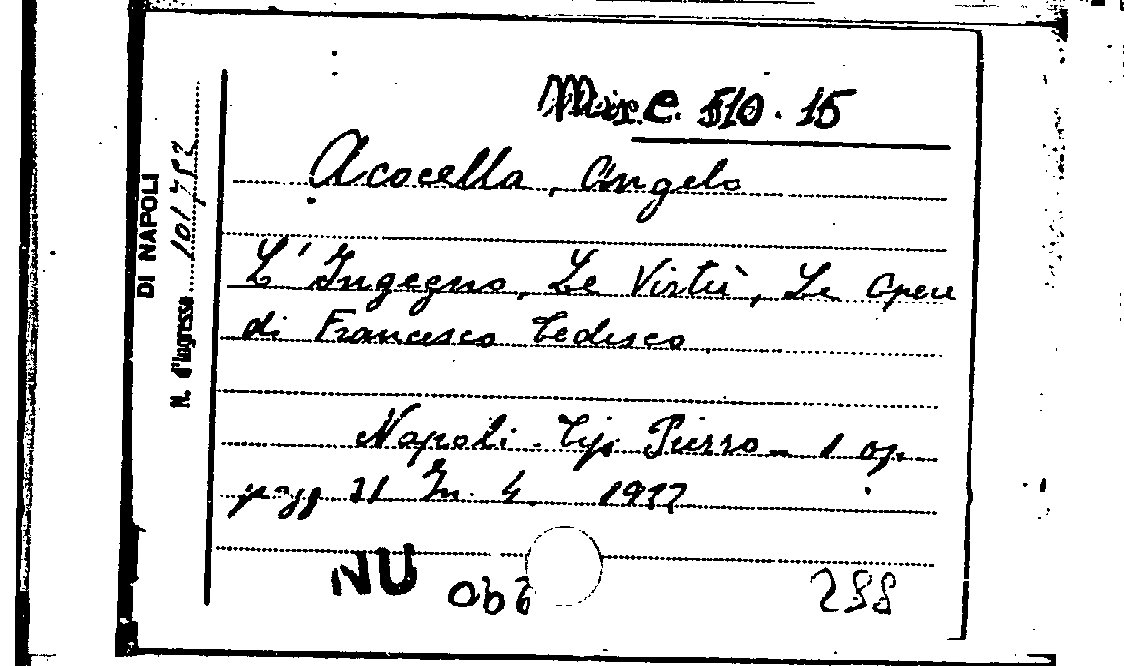 Misc. C. 510. 15
Acocella, Angelo
L' Ingegno, Le Virtù, Le Opere
di Francesco Tedesco
Napoli - Tip. Pierro - 1 op.
pagg 31 In. 4. 1917
NU
288
DI NAPOLI
N. d'Ingresso 101752